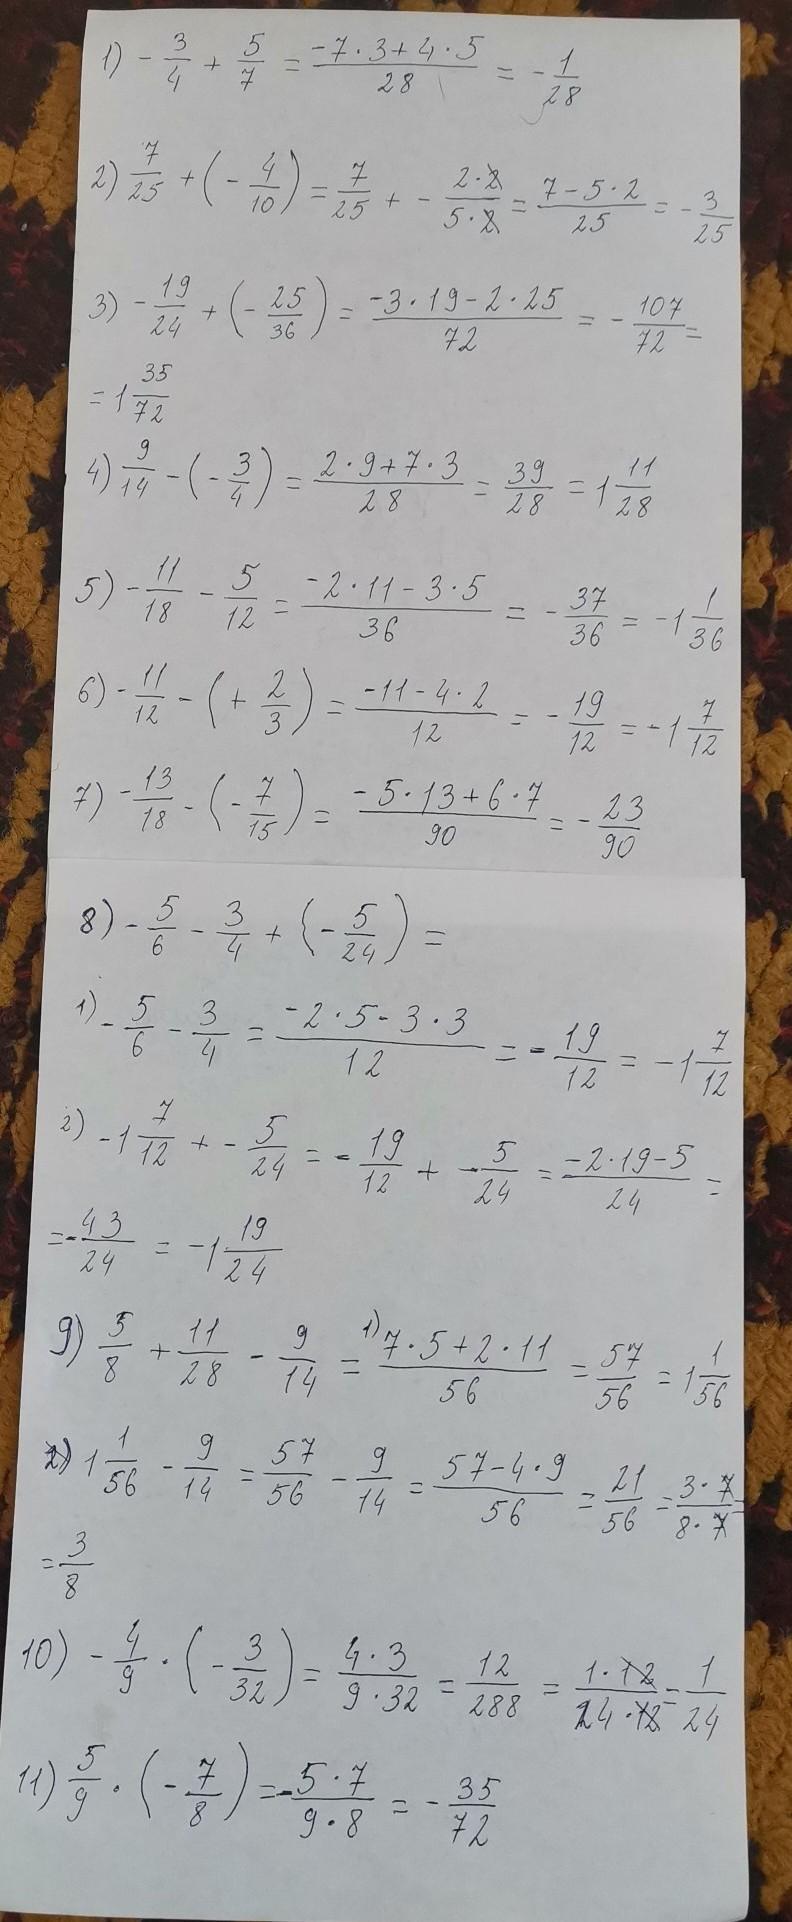 1) -3/4 + 5/7 = (-7·3+4·5)/28 = -1/28
2) 7/25 + (-4/10) = 7/25 + -(2·2)/(5·2) = (7-5·2)/25 = -3/25
3) -19/24 + (-25/36) = (-3·19-2·25)/72 = -107/72 =
= 1 35/72
4) 9/14 - (-3/4) = (2·9+7·3)/28 = 39/28 = 1 11/28
5) -11/18 - 5/12 = (-2·11-3·5)/36 = -37/36 = -1 1/36
6) -11/12 - (+2/3) = (-11-4·2)/12 = -19/12 = -1 7/12
7) -13/18 - (-7/15) = (-5·13+6·7)/90 = -23/90
8) -5/6 - 3/4 + (-5/24) =
1) -5/6 - 3/4 = (-2·5-3·3)/12 = -19/12 = -1 7/12
2) -1 7/12 + -5/24 = -19/12 + -5/24 = (-2·19-5)/24 =
= -43/24 = -1 19/24
9) 5/8 + 11/28 - 9/14 = 1) (7·5+2·11)/56 = 57/56 = 1 1/56
2) 1 1/56 - 9/14 = 57/56 - 9/14 = (57-4·9)/56 = 21/56 = (3·7)/(8·7) =
= 3/8
10) -4/9 · (-3/32) = (4·3)/(9·32) = 12/288 = (1·12)/(24·12) = 1/24
11) 5/9 · (-7/8) = -(5·7)/(9·8) = -35/72